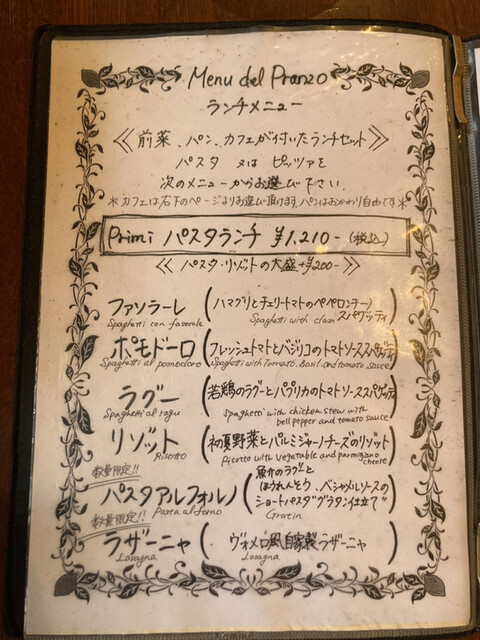 Menu del Pranzo
ランチメニュー
≪前菜、パン、カフェが付いたランチセット≫
パスタ 又は ピッツァを
次のメニューからお選び下さい
*カフェは右下のページよりお選び頂けます。パンはおかわり自由です*
Primi パスタランチ ¥1,210- (税込)
≪パスタ・リゾットの大盛+¥200-≫
ファソラーレ (ハマグリとチェリートマトのペペロンチーノ
スパゲッティ)
Spaghetti con fasorole Spaghetti with clam
ポモドーロ (フレッシュトマトとバジリコのトマトソーススパゲッティ)
Spaghetti al pomodoro Spaghetti with Tomato, Basil and tomato sauce
ラグー (若鶏のラグーとパプリカのトマトソーススパゲッティ)
Spaghetti al ragu Spaghetti with chicken stew with
bell pepper and tomato sauce
リゾット (初夏野菜とパルミジャーノチーズのリゾット)
Risotto Risotto with vegetable and parmigiano
cheese
数量限定!!
パスタアルフォルノ (魚介のラグーと
ほうれんそう、ベシャメルソースの
ショートパスタ"グラタン仕立て")
Pasta al forno Gratin
数量限定!!
ラザーニャ (ヴォメロ風自家製ラザーニャ)
Lasagna Lasagna